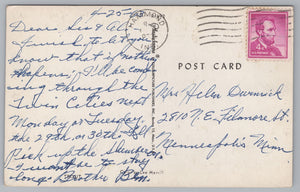 4-25-
HAMMOND
Dear Sis & Al.
Just a line to let you
know that if nothing
happens, I'll be com
ing through the
Twin Cities next
Monday or Tuesday,
the 29th or 30th. I'll
Pick up the
I want to stay
long. Brother
POST CARD
4¢
Mrs Helen
2810 N.E. Fillmore St.
Minneapolis Minn